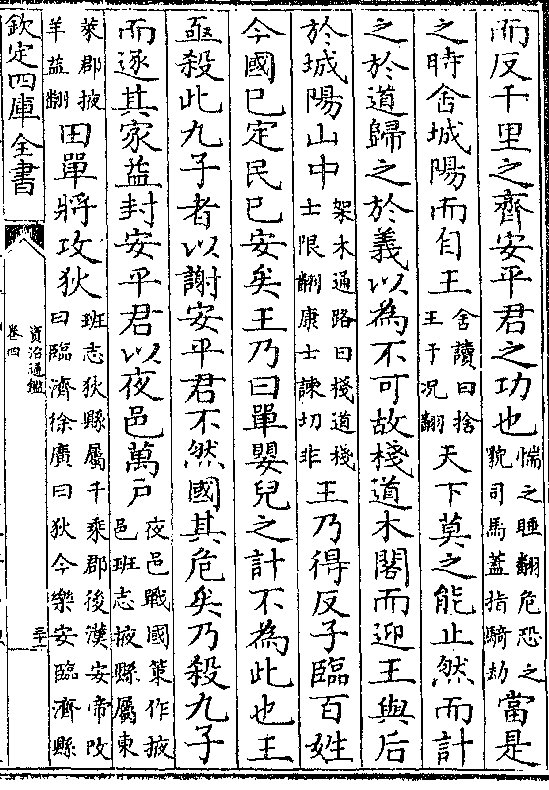 而反千里之齊安平君之功也惴之睡翻危恐之
貌司馬蓋指騎劫當是
之時舍城陽而自王舍讀曰捨
王于况翻天下莫之能止然而計
之於道歸之於義以為不可故棧道木閣而迎王與后
於城陽山中架木通路曰棧道棧
士限翻康士諫切非王乃得反子臨百姓
今國已定民已安矣王乃曰單嬰兒之計不為此也王
亟殺此九子者以謝安平君不然國其危矣乃殺九子
而逐其家益封安平君以夜邑萬戶夜邑戰國策作掖
邑班志掖縣屬東
萊郡掖
羊益翻田單將攻狄班志狄縣屬千乘郡後漢安帝改
曰臨濟徐廣曰狄今樂安臨濟縣
欽定四庫全書
資治通鑑
卷四